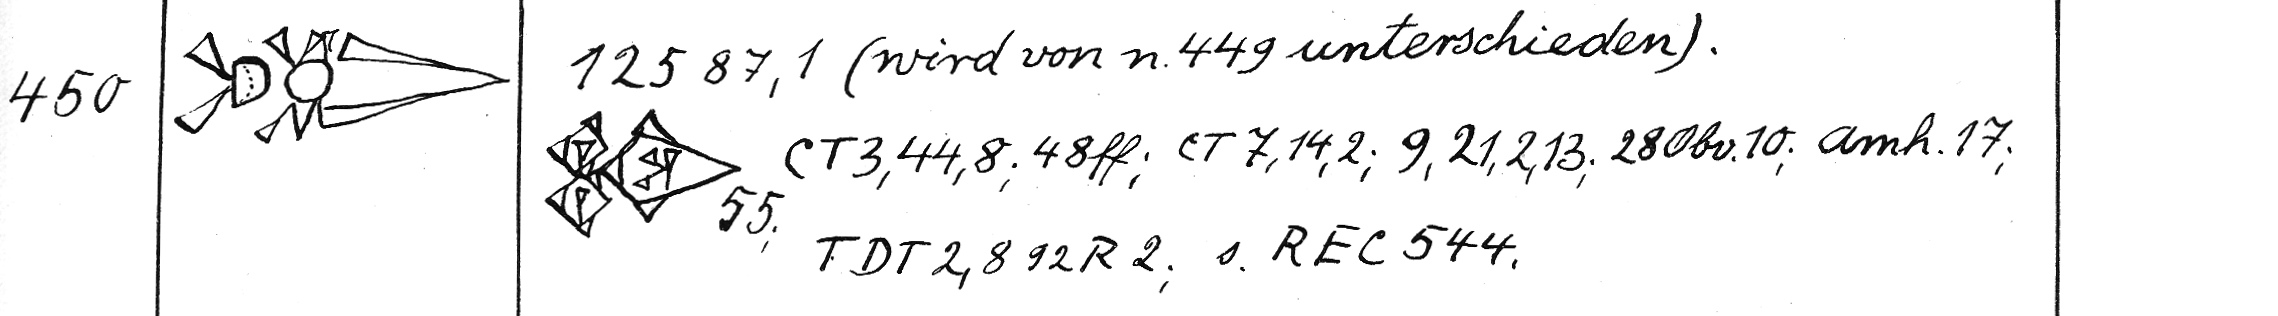 450
12587,1 (wird von n. 449 unterschieden).
55; CT 3,44,8; 48ff; CT 7,14,2; 9,21,2,13; 28 Obv. 10; Amh. 17;
TDT 2, 892 R 2; s. REC 544.